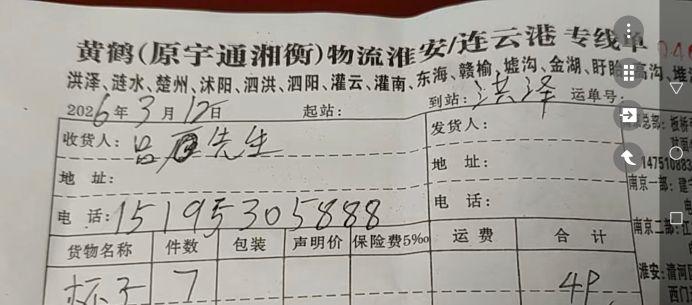 黄鹤(原宇通湘衡)物流淮安/连云港 专线单
洪泽、涟水、楚州、沭阳、泗洪、泗阳、灌云、灌南、东海、赣榆、墟沟、金湖、盱眙、高沟、堆
2026年3月12日 起站: 到站:洪泽 运单号:
收货人:吕 先生 发货人:
地 址: 地 址:
电 话:15195305888 电 话:
货物名称 件数 包装 声明价 保险费5‰ 运 费 合 计
杯子 7
总部:板桥
147510883
南京一部:建
南京二部:江
淮安:清河
西门